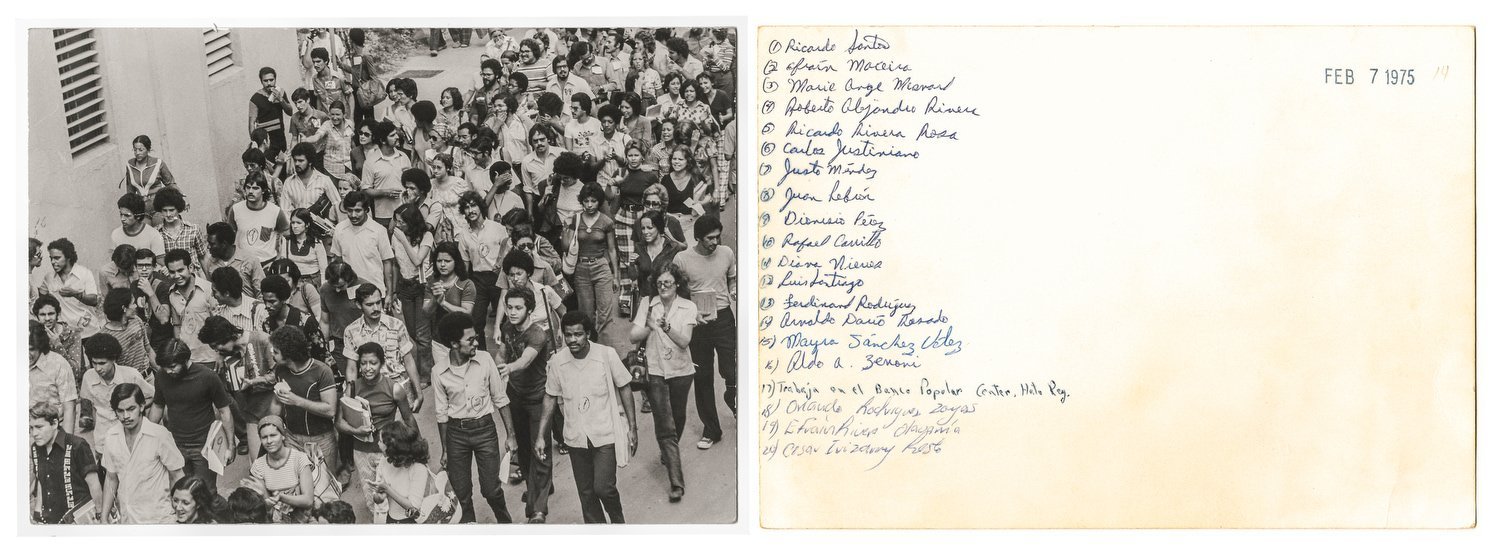 ① Ricardo Santos
② Efraín Maceira
③ Marie Ange
④ Roberto Alejandro Rivera
⑤ Ricardo Rivera Rosa
⑥ Carlos Justiniano
⑦ Justo Méndez
⑧ Juan Lebrón
⑨ Dionisio Pérez
⑩ Rafael Carrillo
⑪ Diana Nieves
⑫ Luis Santiago
⑬ Ferdinand Rodríguez
14) Arnaldo Darío Rosado
15) Mayra Sánchez Vélez
16) Aldo A. Zenoni
17) Trabaja en el Banco Popular Center, Hato Rey.
18) Orlando Rodriguez Zayas
19) Efrain Rivera
20) Cesar
FEB 7 1975